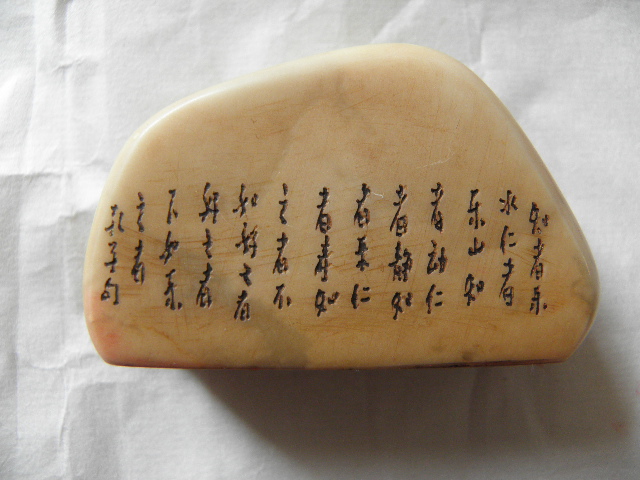 知者乐
水仁者
乐山知
者动仁
者静知
者乐仁
者寿知
之者不
如好之者
好之者
不如乐
之者
孔子句